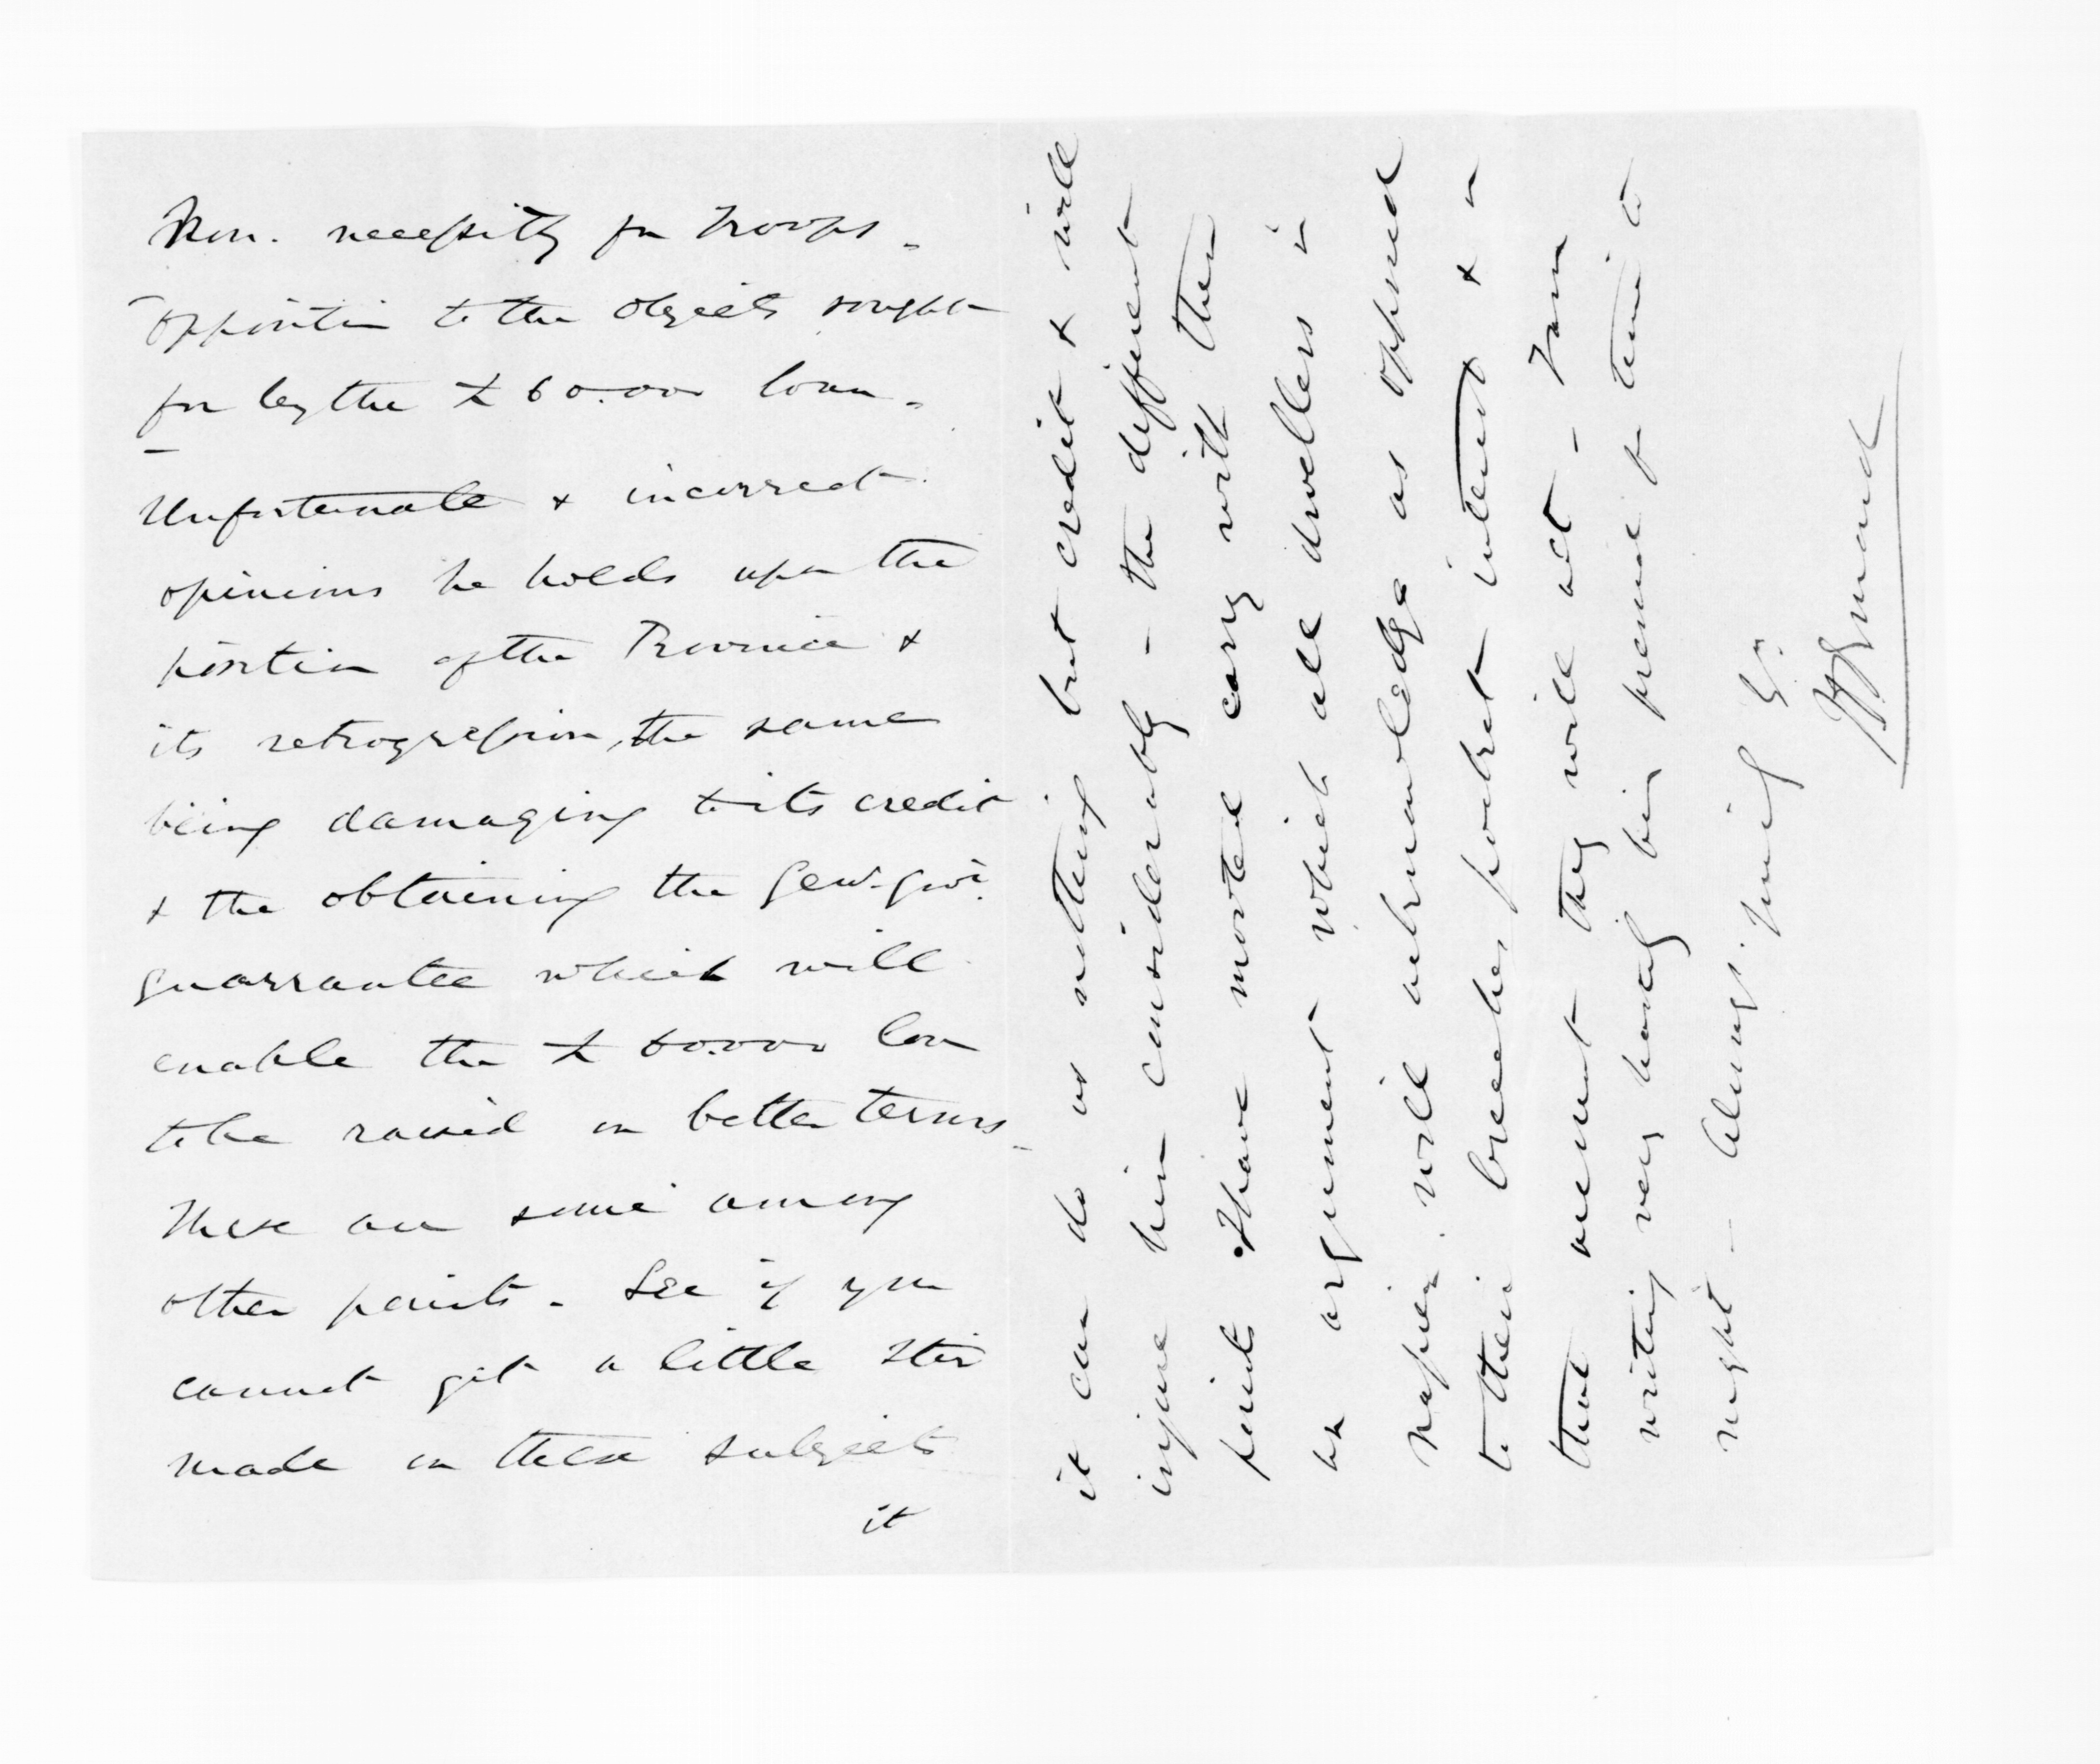 Non. necessity for Troops -
opposition to the objects sought
for by the £60.000 loan -
Unfortunate & incorrect
opinions he holds upon the
position of the Province &
its retrogression, the same
being damaging to its credit
& the obtaining the Genl. Govt.
guarrantee which will
enable the £60.000 loan
to be raised on better terms -
These are some among
other points - See if you
cannot get a little stir
made on these subjects
it
it can do us nothing but credit & will
injure him considerably - the different
points I have noted carry with them
an argument which all dwellers in
Napier will acknowledge as opposed
to their breeches pocket interest & on
that account they will act - I am
writing very hastily being pressed for time to
night - Always. Yours